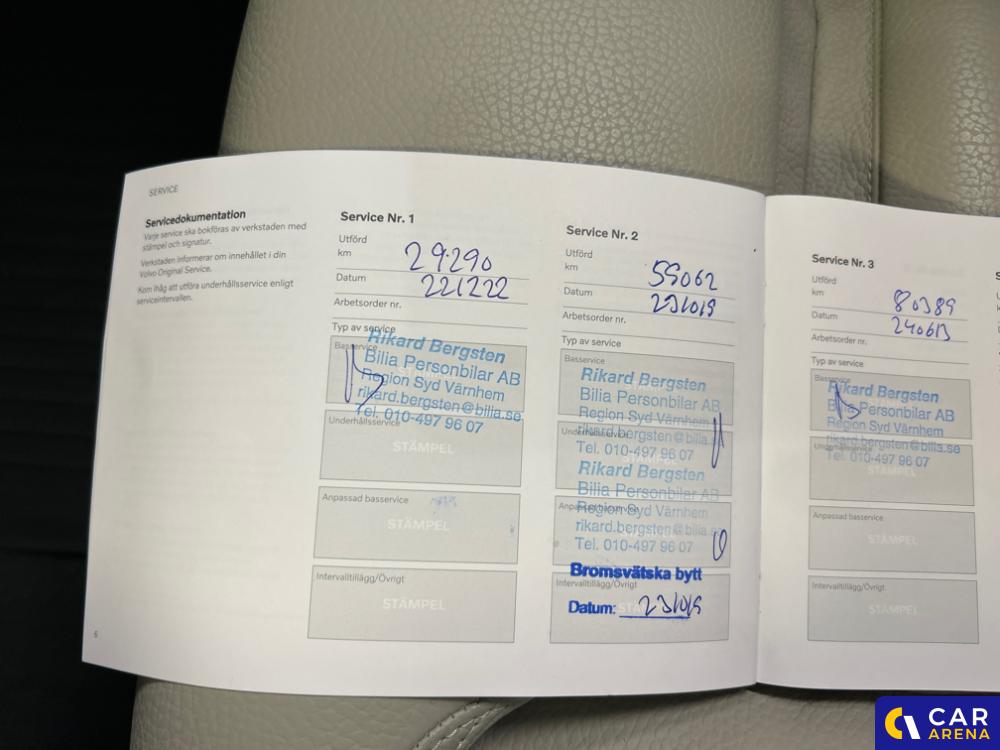 SERVICE
Servicedokumentation
Varje service ska bokföras av verkstaden med
stämpel och signatur.
Verkstaden informerar om innehållet i din
Volvo Original Service.
Kom ihåg att utföra underhållsservice enligt
serviceintervallen.
6
Service Nr. 1
Utförd
km
29290
Datum
221222
Arbetsorder nr.
Typ av service
Basservice
Rikard Bergsten
Bilia Personbilar AB
Region Syd Värnhem
rikard.bergsten@bilia.se
Tel. 010-497 96 07
Underhållsservice
STÄMPEL
Anpassad basservice
STÄMPEL
Intervalltillägg/Övrigt
STÄMPEL
Service Nr. 2
Utförd
km
55062
Datum
231019
Arbetsorder nr.
Typ av service
Basservice
Rikard Bergsten
Bilia Personbilar AB
Region Syd Värnhem
Underhållsservice
rikard.bergsten@bilia.se
Tel. 010-497 96 07
Rikard Bergsten
Bilia Personbilar AB
Anpassad basservice
Region Syd Värnhem
rikard.bergsten@bilia.se
Tel. 010-497 96 07
Bromsvätska bytt
Intervalltillägg/Övrigt
Datum: 231019
Service Nr. 3
Utförd
km
80389
Datum
240613
Arbetsorder nr.
Typ av service
Basservice
Rikard Bergsten
Bilia Personbilar AB
Region Syd Värnhem
rikard.bergsten@bilia.se
Underhållsservice
Tel. 010-497 96 07
STÄMPEL
Anpassad basservice
STÄMPEL
Intervalltillägg/Övrigt
STÄMPEL
CAR
ARENA